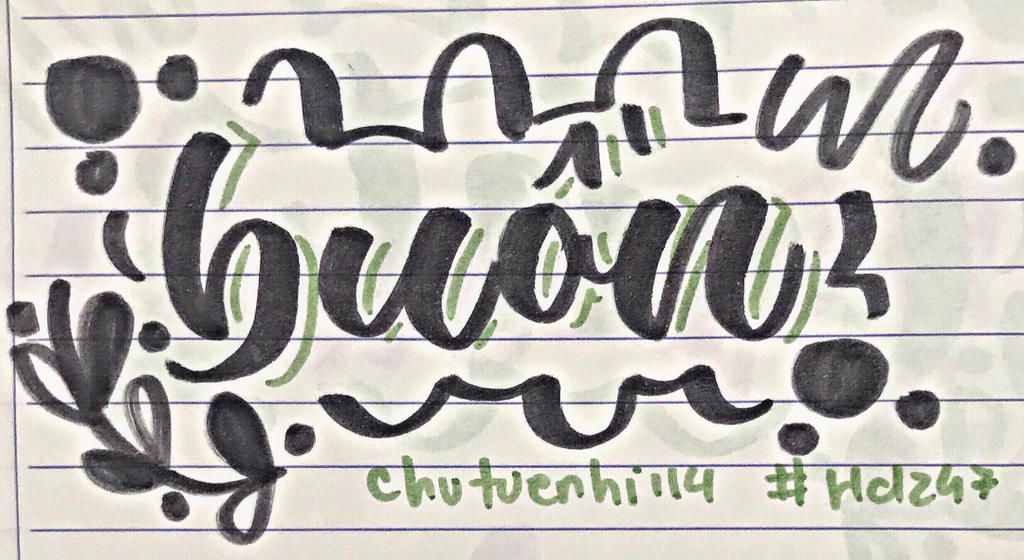 buồn
chutuenhi114 #Hdz247